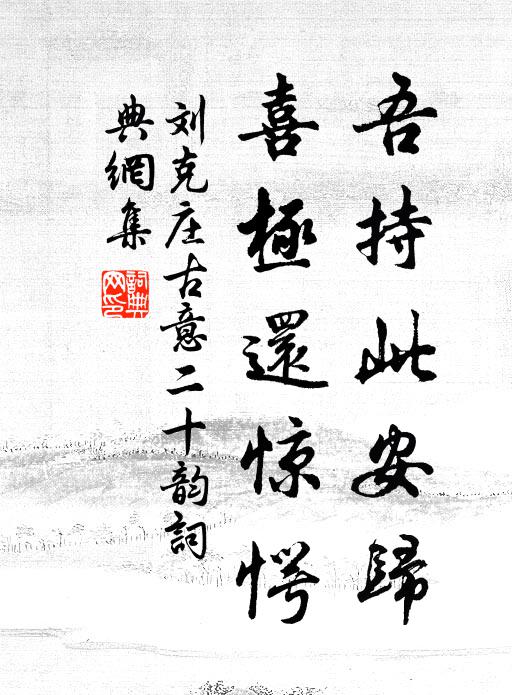 吾持此安歸
喜極還惊愕
刘克庄古意二十韵詞
典網集
詞典网印